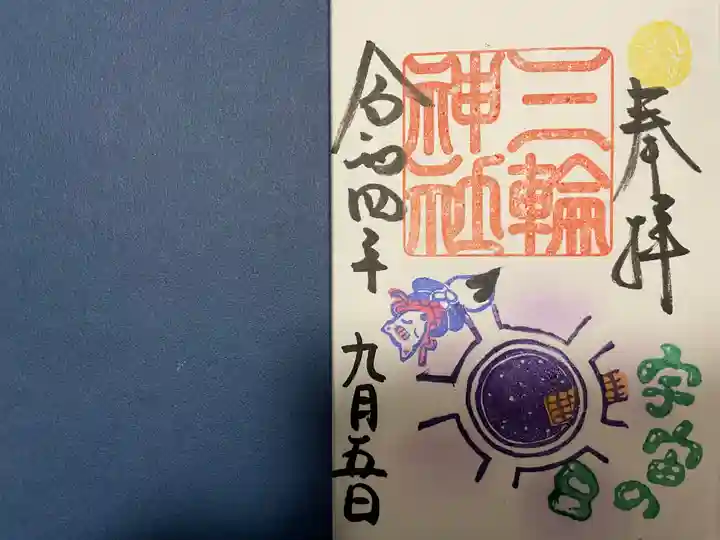 奉拝
三輪
神社
宇宙の
日
令和四年
九月五日